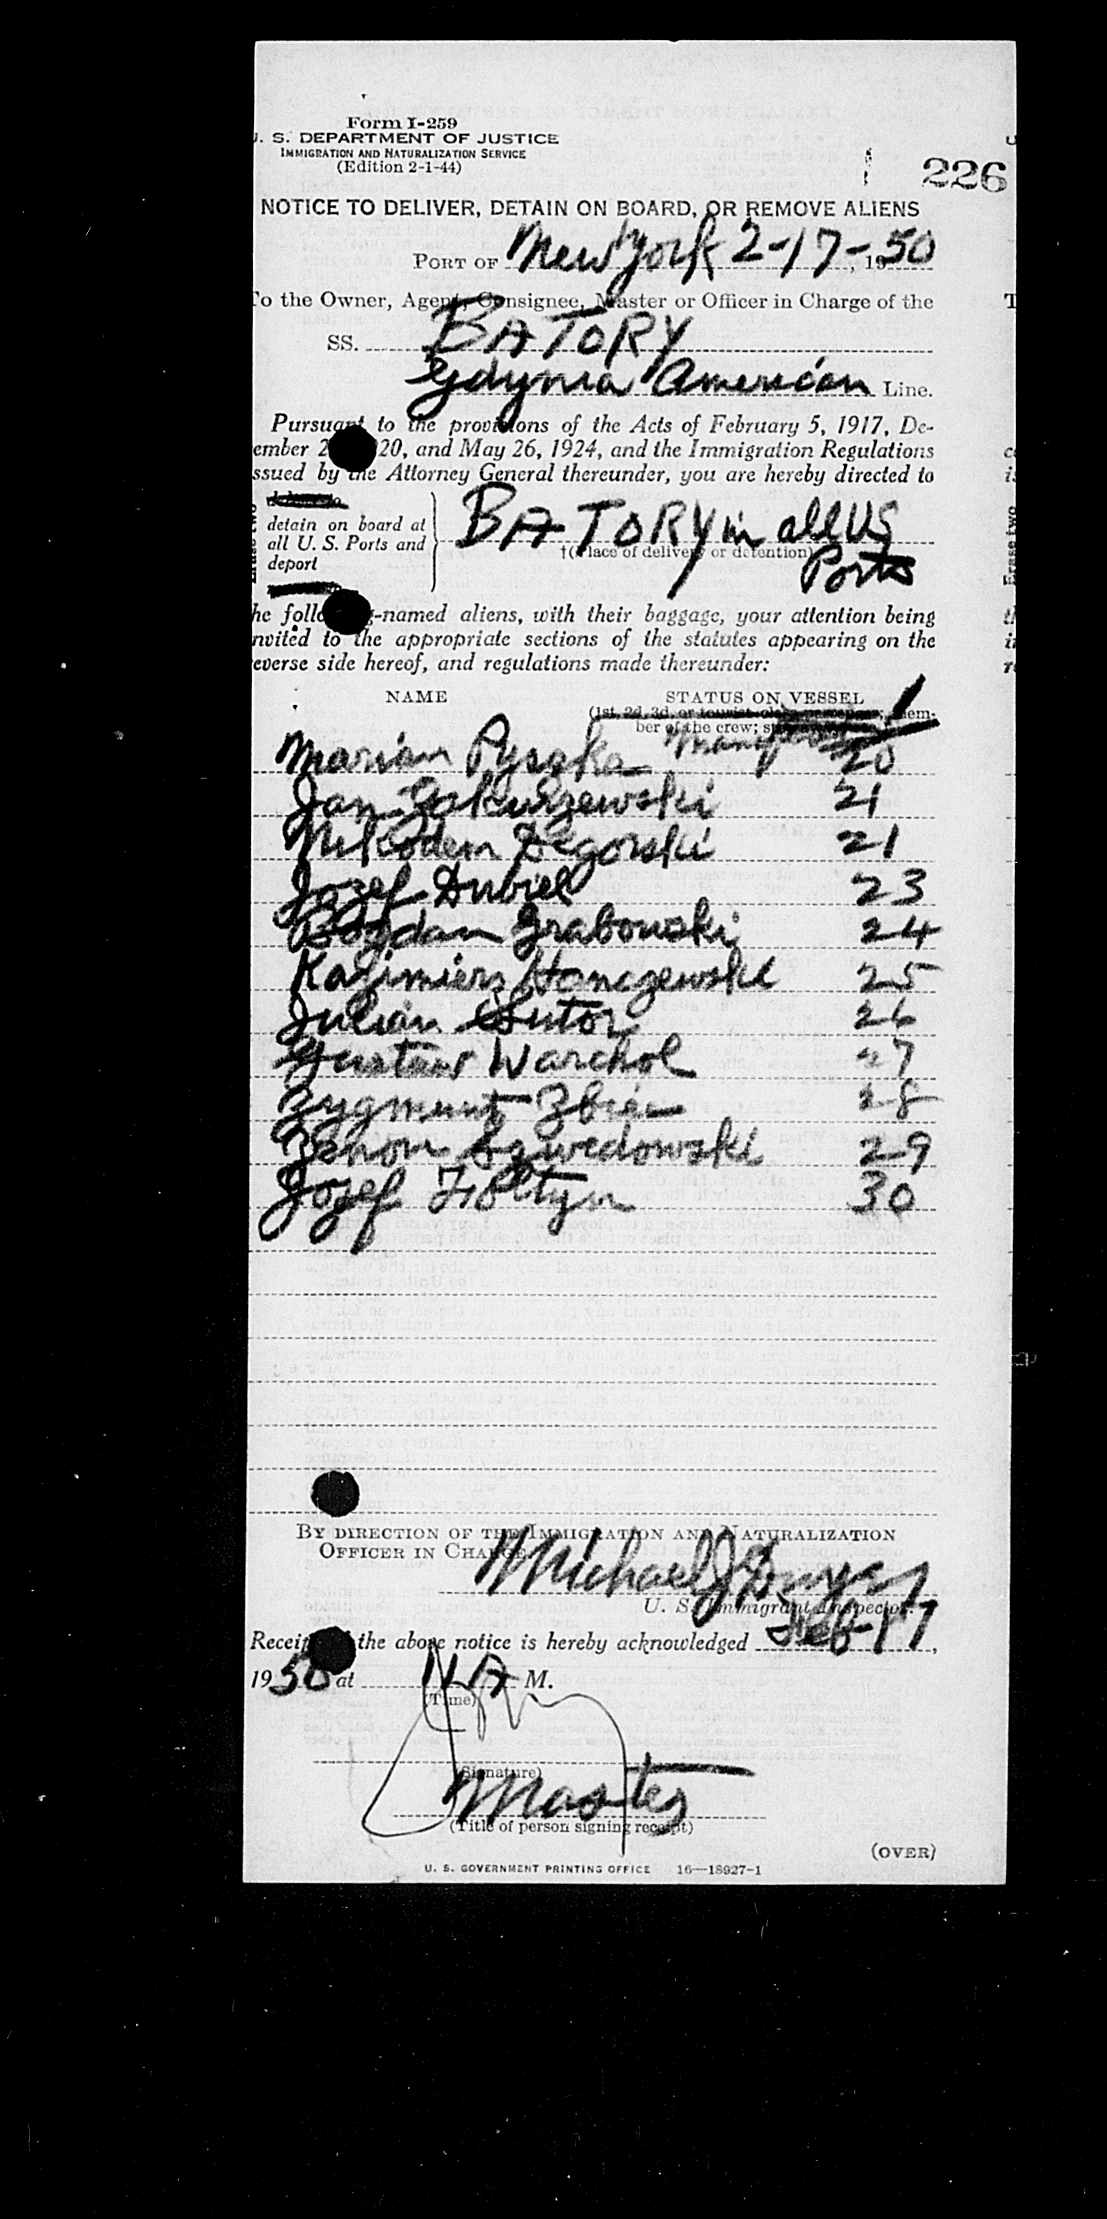 Form I-259
U. S. DEPARTMENT OF JUSTICE
IMMIGRATION AND NATURALIZATION SERVICE
(Edition 2-1-44)
226
NOTICE TO DELIVER, DETAIN ON BOARD, OR REMOVE ALIENS
PORT OF New York 2-17-, 1950
To the Owner, Agent, Consignee, Master or Officer in Charge of the
SS. BATORY
Gdynia American Line.
Pursuant to the provisions of the Acts of February 5, 1917, De-
cember 20, and May 26, 1924, and the Immigration Regulations
issued by the Attorney General thereunder, you are hereby directed to
detain on board at
all U. S. Ports and
deport
BATORY in all US
†(Place of delivery or detention)
Ports
the following-named aliens, with their baggage, your attention being
invited to the appropriate sections of the statutes appearing on the
reverse side hereof, and regulations made thereunder:
NAME STATUS ON VESSEL
(1st, 2d, 3d, or tourist class mem-
ber of the crew;
Marian 20
Jan 21
Nikodem Zegorski 21
Jozef Dubiel 23
Bogdan Grabowski 24
Kazimierz Hanczewski 25
Julian Sutor 26
Gustaw Warchol 27
Zygmunt 28
Zenon Szwedowski 29
Jozef 30
BY DIRECTION OF THE IMMIGRATION AND NATURALIZATION
OFFICER IN CHARGE.
Michael J Dwyer
U. S. Immigrant Inspector.
Receipt of the above notice is hereby acknowledged Feb-17,
1950 at 11 A M.
(Time)
(Signature)
Master
(Title of person signing receipt)
(OVER)
U. S. GOVERNMENT PRINTING OFFICE 16—18927-1